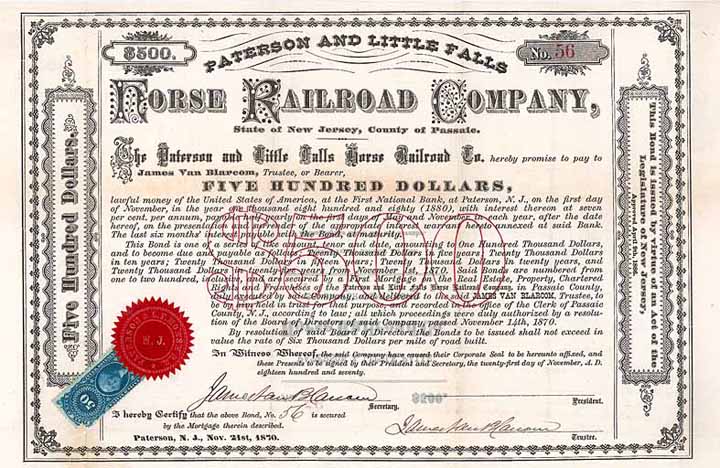 $500.
PATERSON AND LITTLE FALLS
No. 56
HORSE RAILROAD COMPANY,
State of New Jersey, County of Passaic.
The Paterson and Little Falls Horse Railroad Co. hereby promise to pay to
James Van Blarcom, Trustee, or Bearer,
FIVE HUNDRED DOLLARS,
lawful money of the United States of America, at the First National Bank, at Paterson, N. J., on the first day
of November, in the year of Thousand eight hundred and eighty (1880), with interest thereon at seven
per cent. per annum, payable yearly on the first days of and November each year, after the date
hereof, on the presentation der of the of inte hereto annexed at said Bank.
The last six months interest with the Bond, at maturity.
This Bond is one of a series like amount, enor and date, amounting to One Hundred Thousand Dollars,
and to become due and payable as follows: Twenty Thousand Dollars in five years; Twenty Thousand Dollars
in ten years; Twenty Thousand Dollars in fifteen years; Twenty Thousand Dollars in twenty years, and
Twenty Thousand Dollars in years from November 1st, 1870. Said Bonds are numbered from
one to two hundred, inclusive, and are secured by a First Mortgage on the Real Estate, Property, Chartered
Rights and Franchises of the Horse Railroad Company, in Passaic County,
executed by said Company, and delivered to the said JAMES VAN BLARCOM, Trustee, to
be by him held in trust for that purpose, and recorded in the office of the Clerk of Passaic
County, N. J., according to law; all which proceedings were duly authorized by a resolu-
tion of the Board of Directors of said Company passed November 14th, 1870.
By resolution of said Board of Directors the Bonds to be issued shall not exceed in
value the rate of Six Thousand Dollars per mile of road built.
In Witness Whereof, the said Company have caused their Corporate Seal to be hereunto affixed, and
these Presents to be signed by their President and Secretary, the twenty-first day of November, A. D.
eighteen hundred and seventy.
James Van Blarcom
Secretary.
$200
President.
I hereby Certify that the above Bond, No. 56 is secured
by the Mortgage therein described.
James Van Blarcom
Trustee.
Paterson, N. J., Nov. 21st, 1870.
Five Hundred Dollars.
This Bond is issued by virtue of an Act of the
Legislature of New Jersey,
$500
N. J.
50